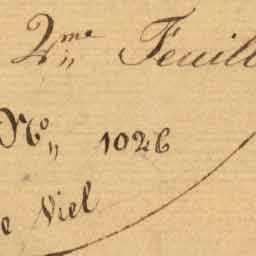 2.me Feuill
No,, 1026
e Viel